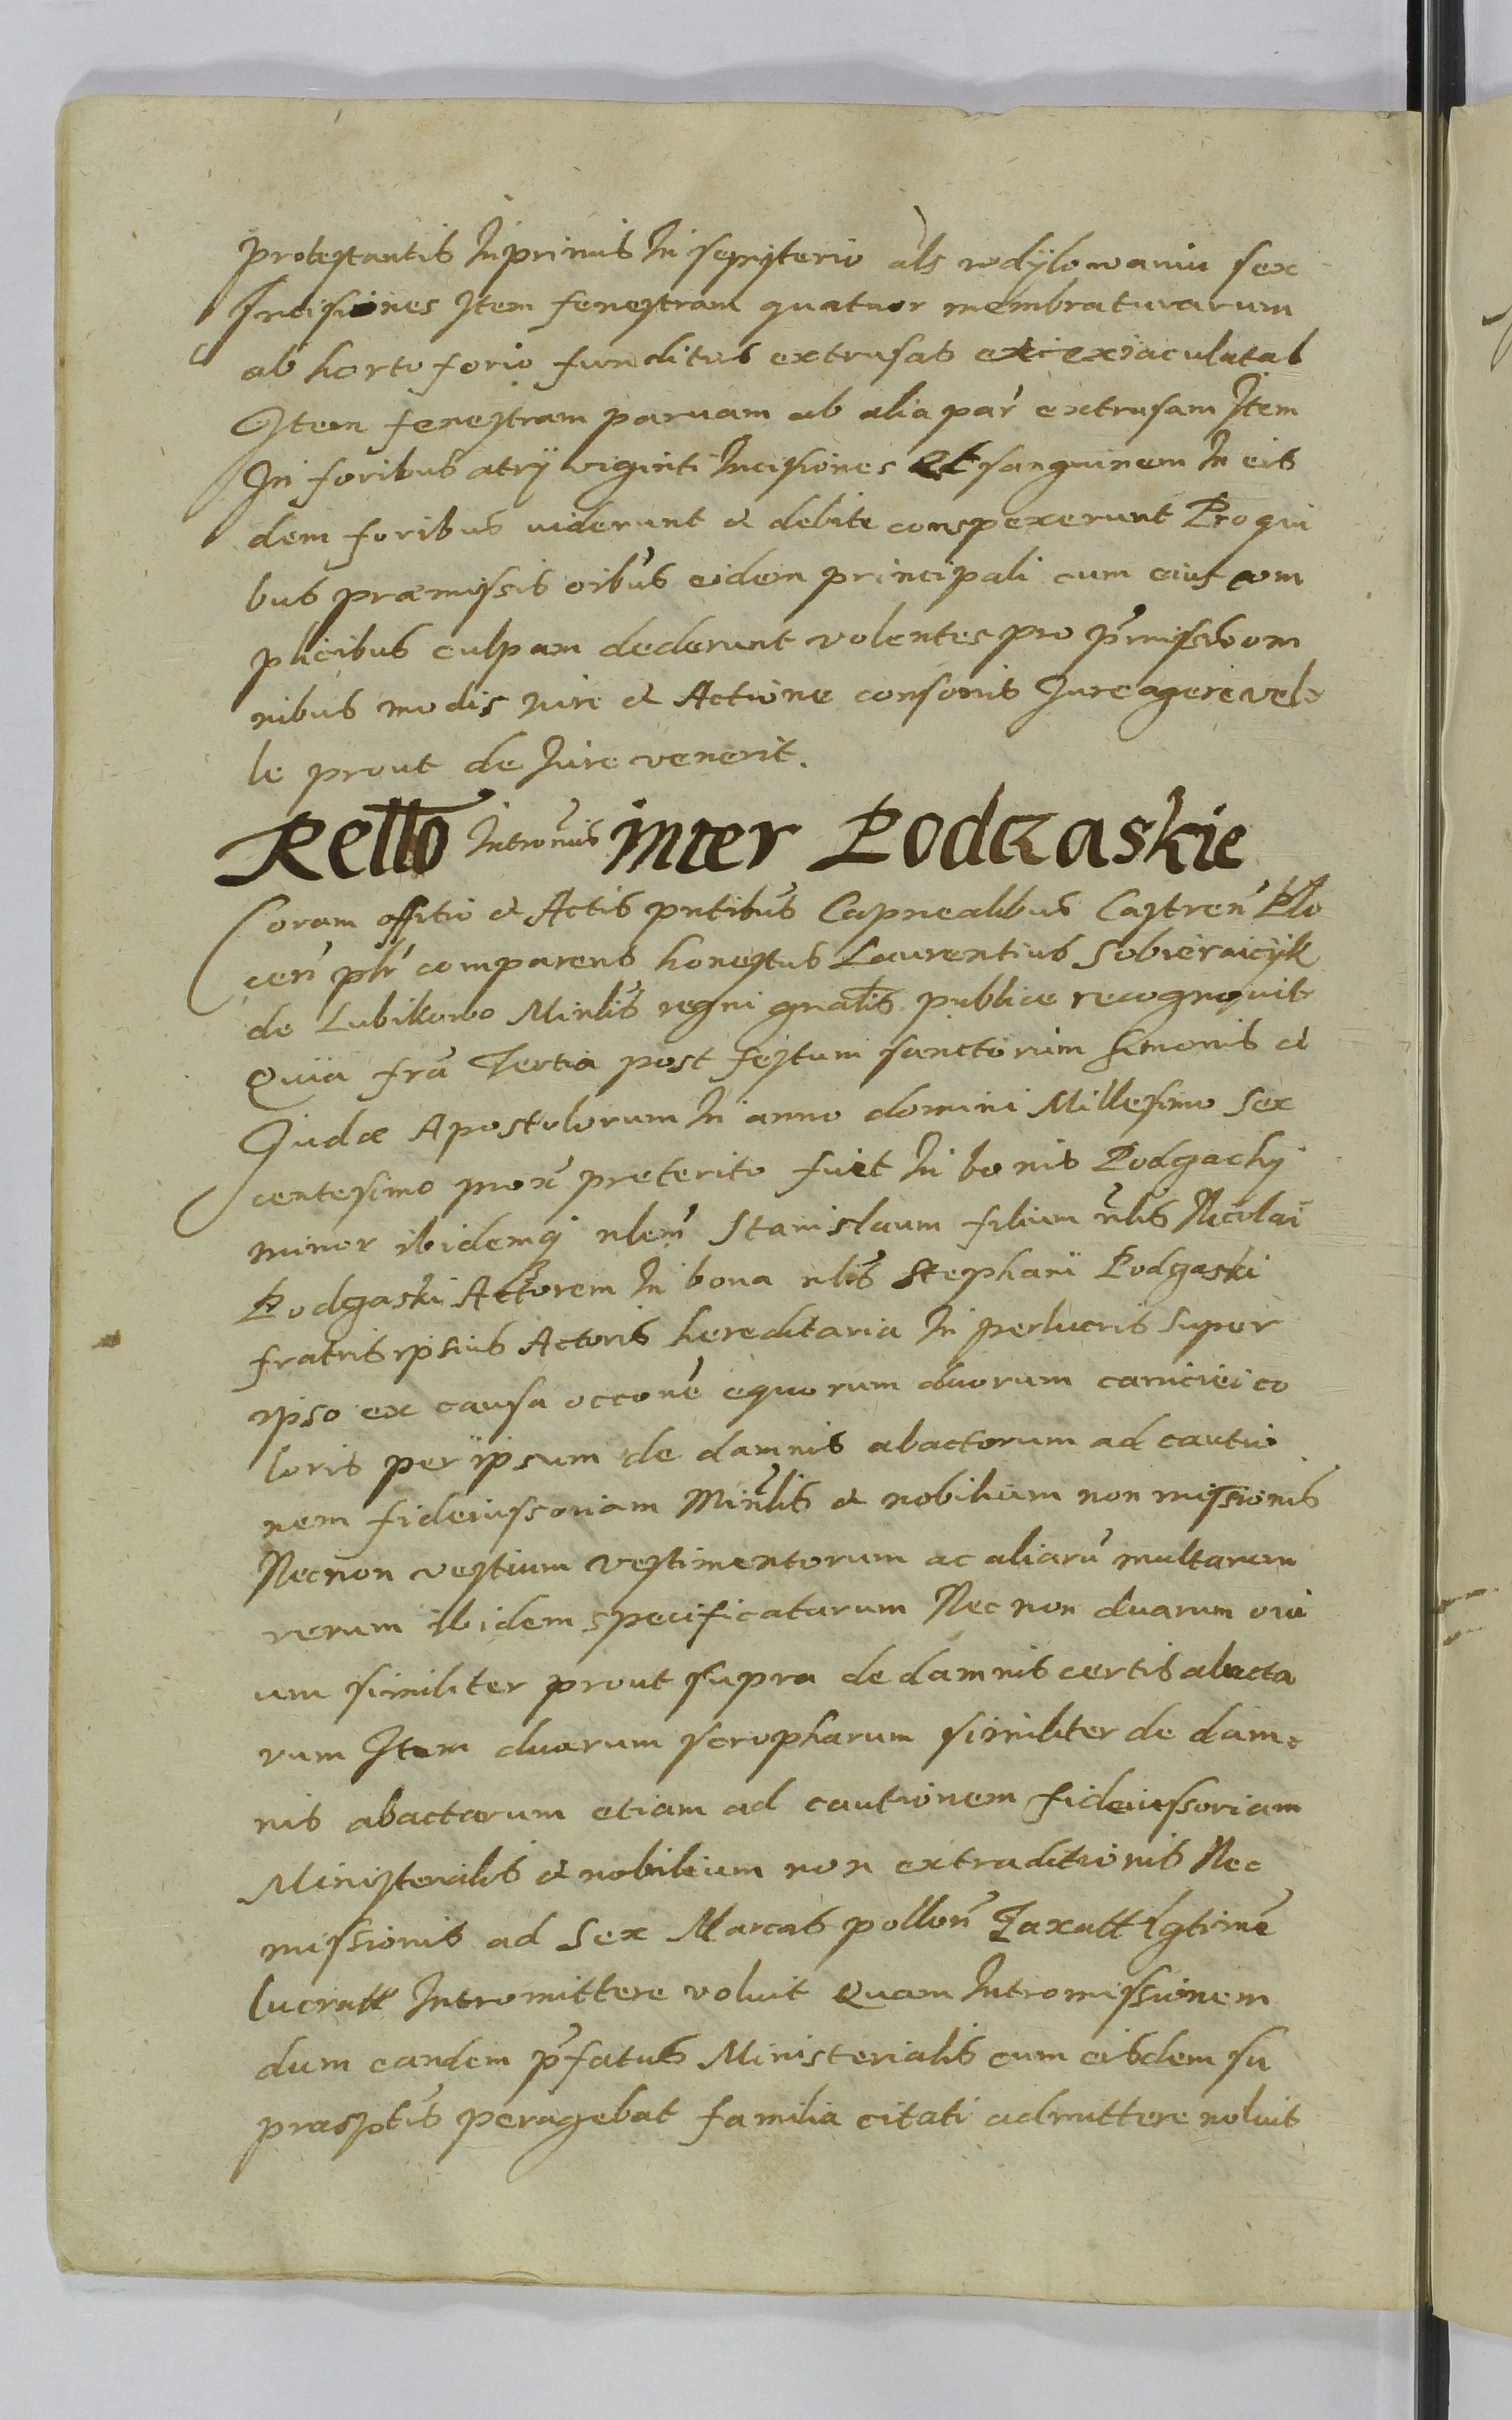 protestantis Inprimis In sepisterio als wdylowaniu sex
Incisiones Item fenestram quatuor membraturarum
ab horto forio funditus extrusas et exiaculatas
Item fenestram paruam ab alia par extrusam Item
In foribus atrÿ viginti Incisiones Et sanguinem In eis
dem foribus uiderunt et debite conspexerunt Pro qui
bus præmissis oibus eidem principali cum eius com
plicibus culpam dederunt volentes pro pmissis om
nibus modis iure et Actione consonis Jure agere vel
le prout de Iure venerit.
Rello Intromis inter Podgaskie
Coram officio et Actis pntibus Capnealibus Castren Plo
cen plr comparens honestus Laurentius Sobieraicÿk
de Lubikowo Minlis regni gnalis publice recognovit
Quia fra Tertia post festum sanctorum Simonis et
Judæ Apostolorum In anno domini Millesimo Sex
centesimo prox preterito fuit In bonis Podgachÿ
minor ibidemq nlem Stanislaum filium nlis Nicolai
Podgaski Actorem In bona nlis Stephani Podgaski
fratris ipsius Actoris hereditaria In perlucris super
ipso ex causa occone equorum duorum caniciei co
loris per ipsum de damnis abactorum ad cautio
nem fideiussoriam Minlis et nobilium non missionis
Necnon vestium vestimentorum ac aliaru multarum
rerum ibidem specificatarum Nec non duarum oui
um similiter prout supra de damnis certis abacta
rum Item duarum scropharum similiter de dam
nis abactarum etiam ad cautionem fideiussoriam
Ministerialis et nobilium non extraditionis Nec
missionis ad Sex Marcas pollon Taxatt Lgtime
lucratt Intromittere voluit Quam Intromissionem
dum eandem pfatus Ministerialis cum eisdem su
prasptis peragebat familia citati admittere noluit